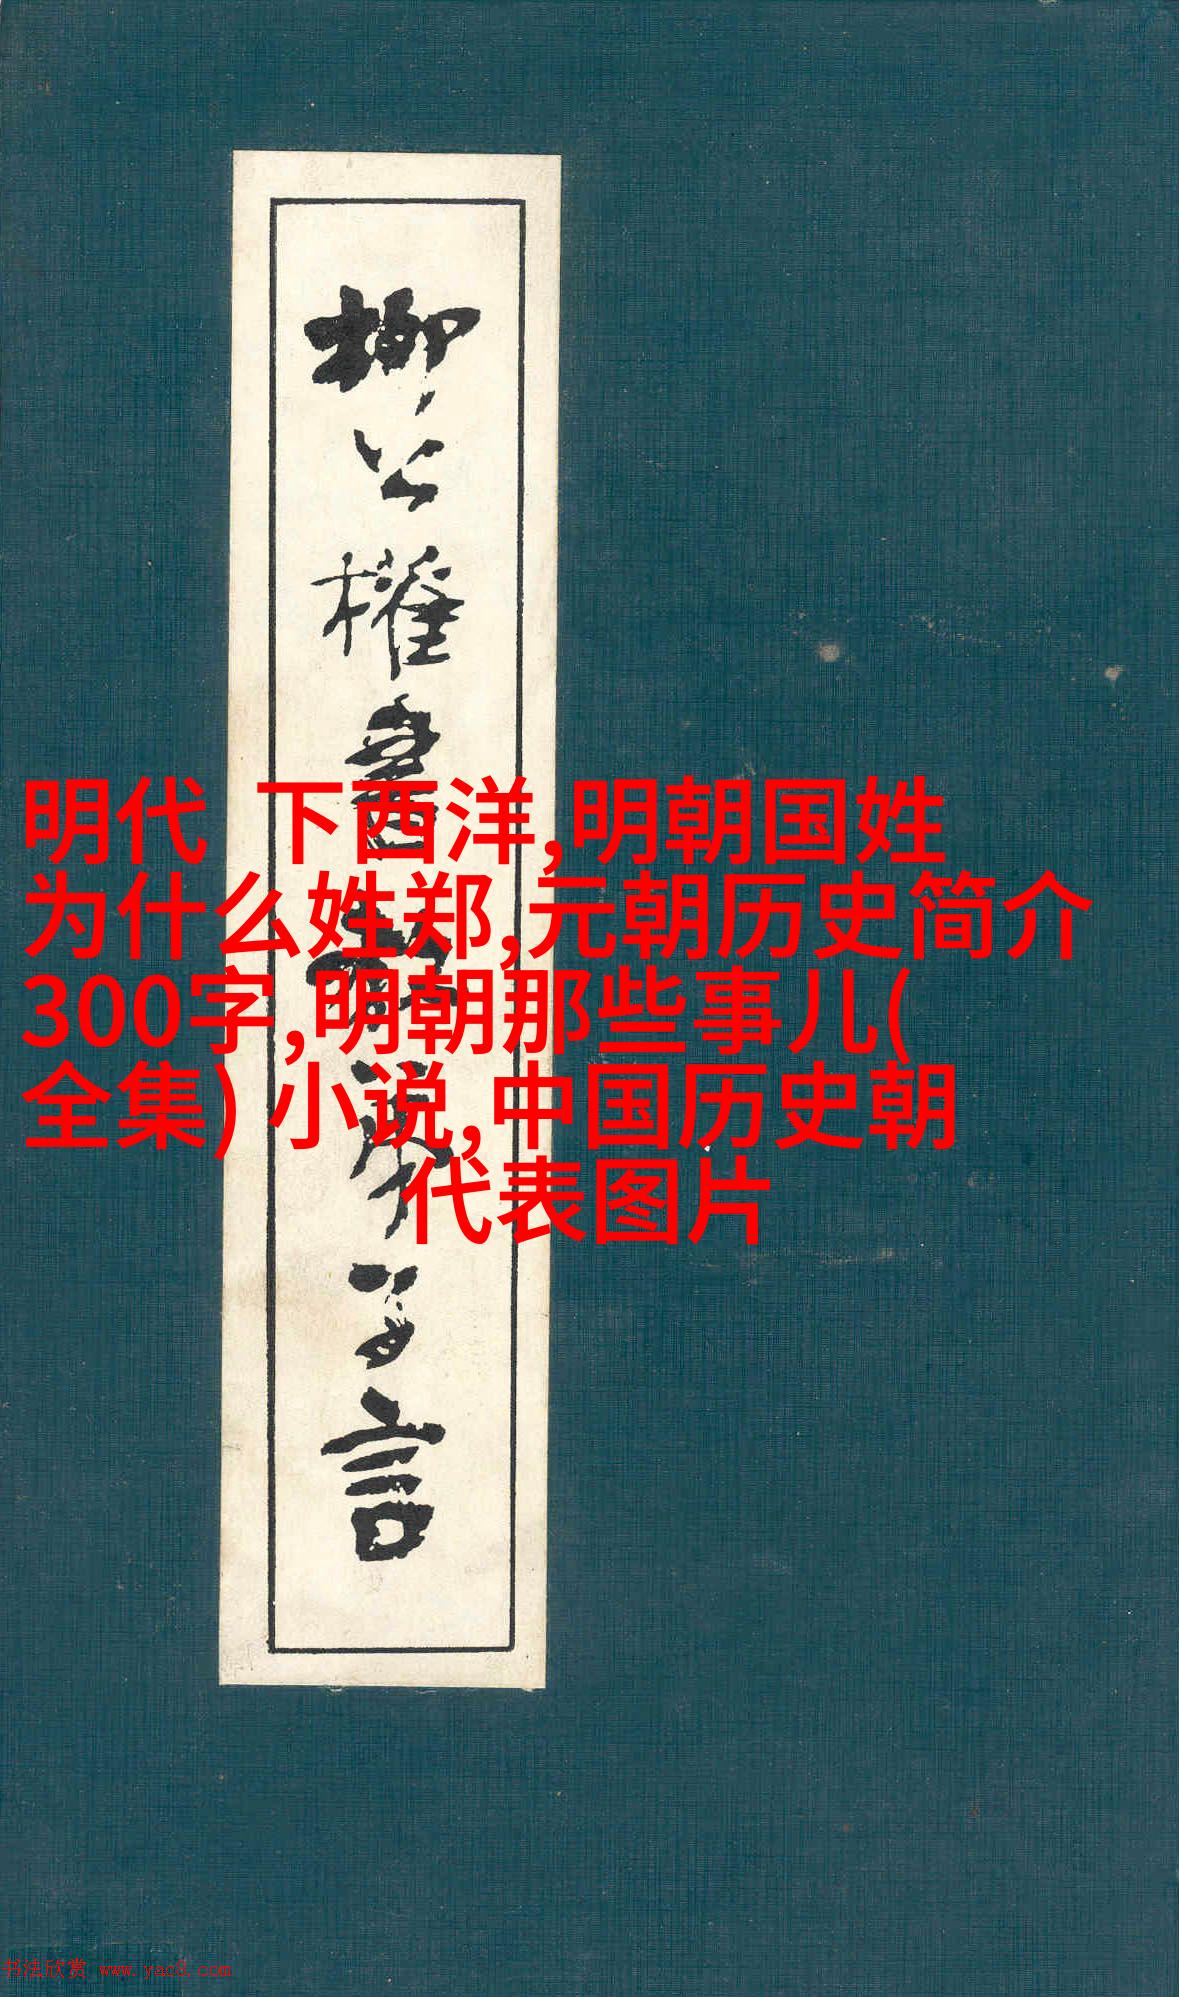 柳公權書
言
明代  下西洋,明朝国姓
为什么姓郑,元朝历史简介
300字,明朝那些事儿(
全集) 小说,中国历史朝
代表图片
书法欣赏 www.yac8.com